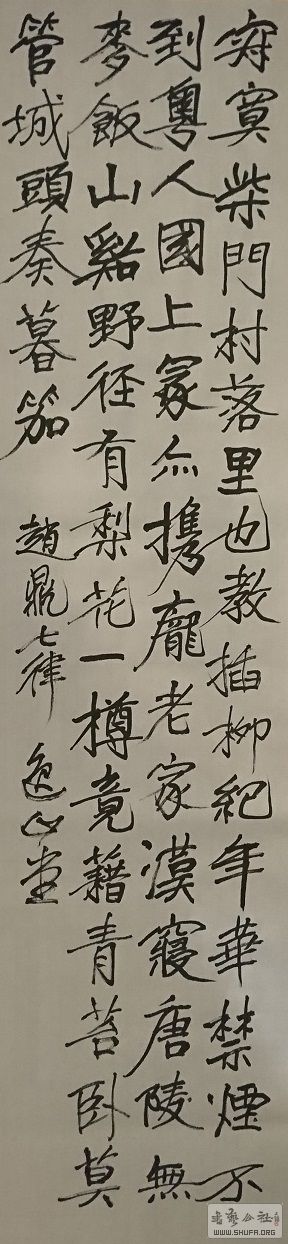 寂寞柴門村落里也教插柳紀年華禁煙不
到粵人國上冢亦攜龐老家漢寢唐陵無
麥飯山谿野徑有梨花一樽竟藉青苔卧莫
管城頭奏暮笳 趙鼎七律
書藝公社
WWW.SHUFA.ORG